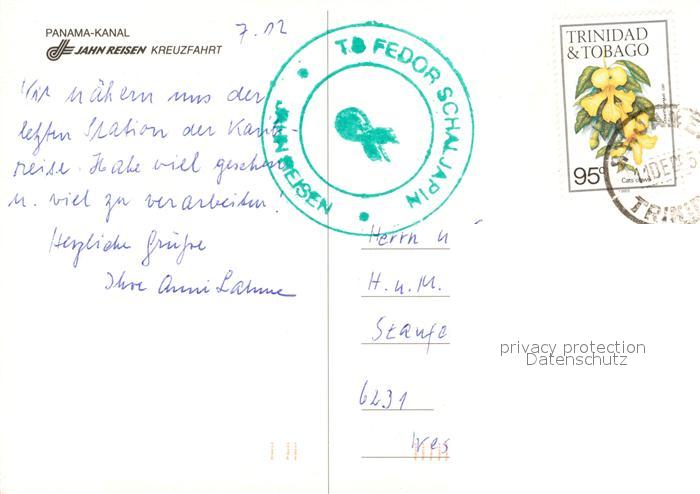 PANAMA-KANAL
JAHN REISEN KREUZFAHRT
7.12
Wir nähern uns der
letzten Station der Karib-
reise. Habe viel gesehen
u. viel zu verarbeiten!
Herzliche Grüße
Ihre Anni
T.S FEDOR SCHALJAPIN
JAHN REISEN
TRINIDAD
& TOBAGO
95c
Cats claw
1989
11DE
TRINI
Herrn u
H. u. M.
Stange
6231
privacy protection
Datenschutz